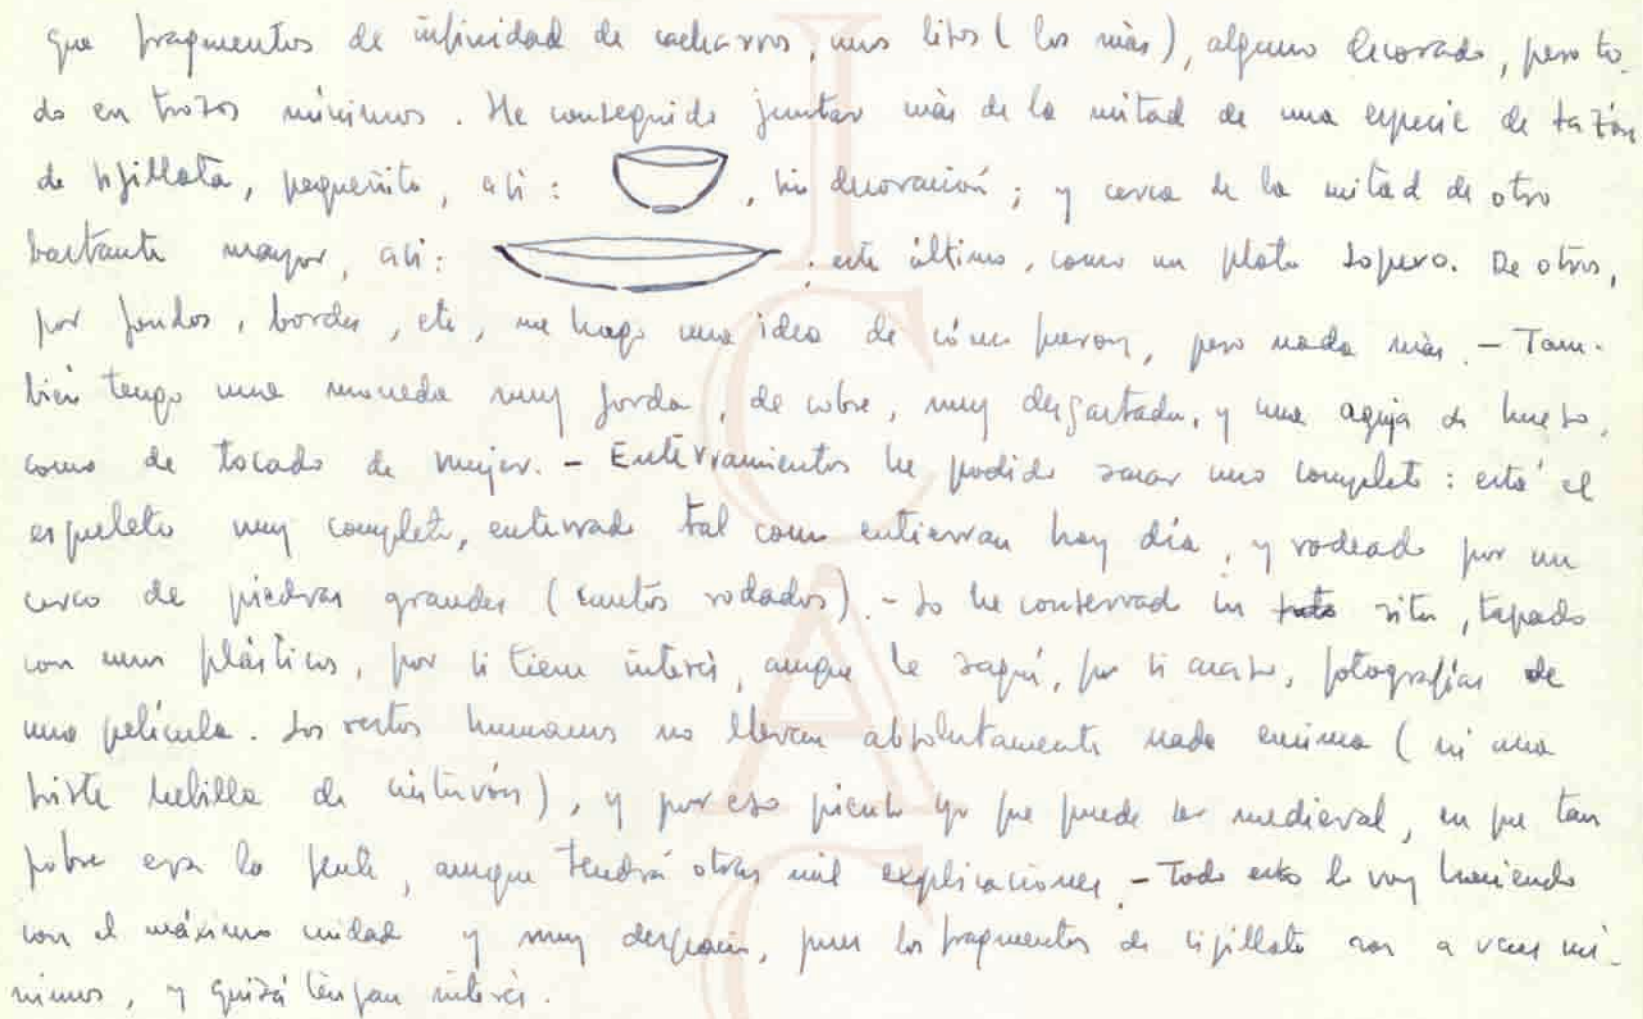 que fragmentos de infinidad de cacharros, unos lisos (los más), alguno decorado, pero to-
do en trozos mínimos. He conseguido juntar más de la mitad de una especie de tazón
de sigillata, pequeñito, así: , sin decoración; y cerca de la mitad de otro
bastante mayor, así: ; este último, como un plato sopero. De otros,
por fondos, bordes, etc, me hago una idea de cómo fueron, pero nada más. - Tam-
bién tengo una moneda muy gorda, de cobre, muy desgastada, y una aguja de hueso,
como de tocado de mujer. - Enterramientos he podido sacar uno completo: está el
esqueleto muy completo, enterrado tal como entierran hoy día, y rodeado por un
cerco de piedras grandes (cantos rodados). - Lo he conservado in situ, tapado
con unos plásticos, por si tiene interés, aunque le saqué, por si acaso, fotografías de
una película. Los restos humanos no llevan absolutamente nada encima (ni una
triste hebilla de cinturón), y por eso pienso yo que puede ser medieval, en que tan
pobre era la gente, aunque tendrá otras mil explicaciones. - Todo esto lo voy haciendo
con el máximo cuidado y muy despacio, pues los fragmentos de sigillata son a veces mí-
nimos, y quizá tengan interés.
ICAC